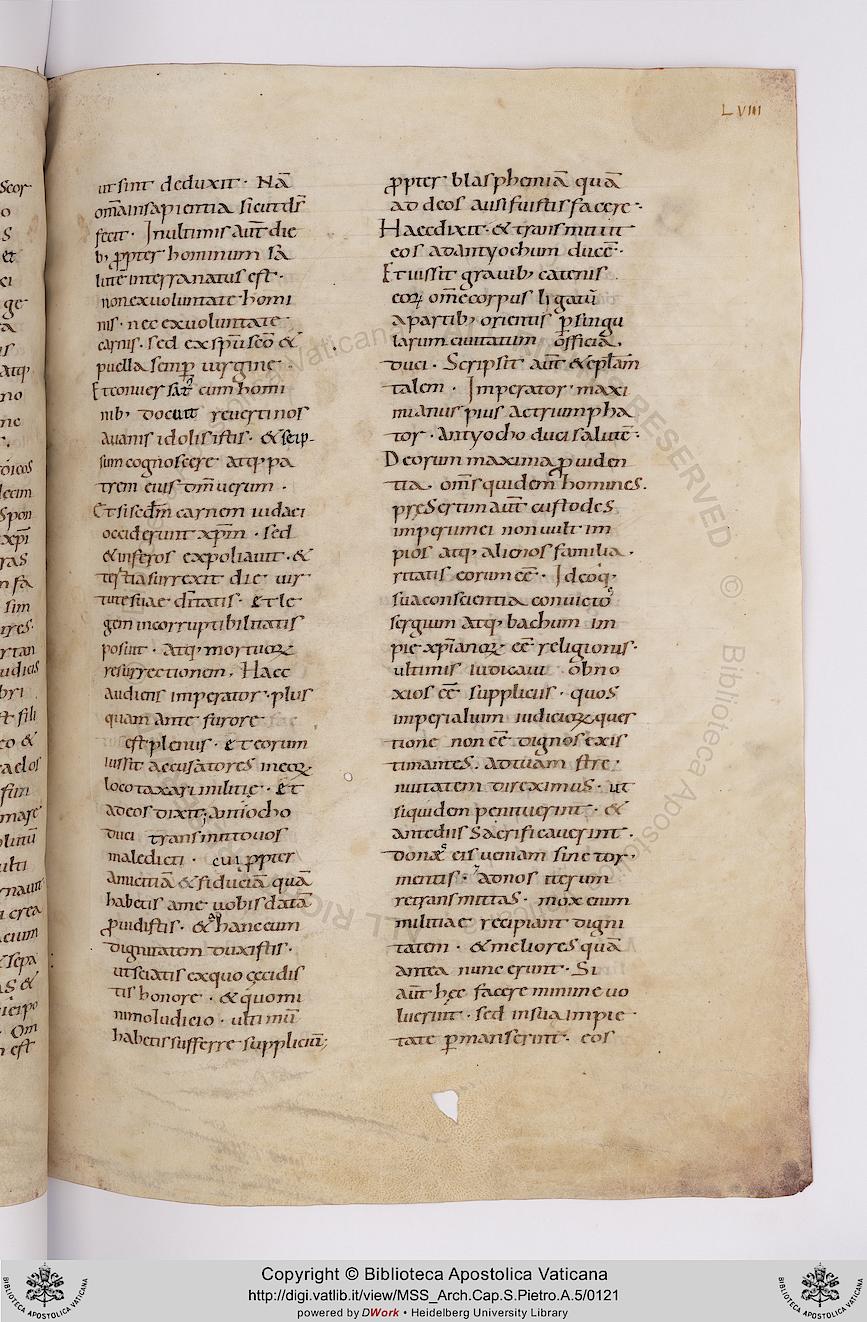 LVIII
ut sint deduxit · Nā
om̄ia insapientia sicut ds̄
fecit · In ultimis aut̄ die
b; ꝓpter hominum sa
lutē in terra natus est ·
non ex voluntate homi
nis · nec ex voluntate
carnis · sed ex sp̄u sc̄o &
puella semp̄ uirgine ·
Et conuersatꝰ cum homi
nib; docuit reuerti nos
a uanis idolis istis · & seip
sum cognoscere atq; pa
trem eius dm̄ uerum ·
Et si sedm̄ carnem iudaei
occiderunt xp̄m · sed
& inferos expoliauit · &
tertia surrexit die uir
tute suae diūtatis · Et le
gem incorruptibilitatis
posuit · atq; mortuoꝝ
resurrectionem · Haec
audiens imperator · plus
quam ante furore
est plenus · Et eorum
iussit accusatores in eoꝝ
loco taxari militie · Et
ad eos dixit; antiocho
duci transmitto uos
maledicti · cui ꝓpter
amicitiā & fiduciā quā
habetis a me uobis datā
ꝓuidistis · & ad hanc eum
dignitatem duxistis ·
ut sciatis ex quo cecidis
tis honore · & quomi
nimo ludicio · ultimū
habetis sufferre suppliciū;
ꝓpter blasphemiā quā
ad deos ausi fuistis facere ·
Haec dixit · & transmittit
eos ad antyochum ducē ·
Et iussit grauib; catenis
eoꝝ om̄e corpus ligatū
a partib; orientis ꝑ singu
larum ciuitatum officia ,
duci · Scripsit aut̄ & eplam̄
talem · Imperator · maxi
mianus pius ac triumpha
tor · antyocho duci salutē ·
Deorum maxima ꝓuiden
tia · om̄s quidem homines ·
presertim aut̄ custodes
imperii mei non uult im
pios atq; alienos familia ·
ritatis eorum eē · Ideoq;
sua conscientia convictos
sergium atq; bachum im
pie xp̄ianoꝝ eē religionis ·
ultimis iudicaui obno
xios eē suppliciis · quos
imperialium iudicioꝝ ques
tione non eē dignos exis
timantes · ad tuam stre ·
nuitatem direximus · ut
siquidem penituerint · &
ante diis sacrificauerint ·
donas eis ueniam sine tor ·
mentis · & ad nos iterum
retransmittas · mox enim
militiae recipiant digni
tatem · & meliores quā
antea nunc erunt · Si
aut̄ hęc facere minime uo
luerint · sed in sua impie ·
tate ꝑmanserint · eos
Copyright © Biblioteca Apostolica Vaticana
http://digi.vatlib.it/view/MSS_Arch.Cap.S.Pietro.A.5/0121
powered by DWork • Heidelberg University Library